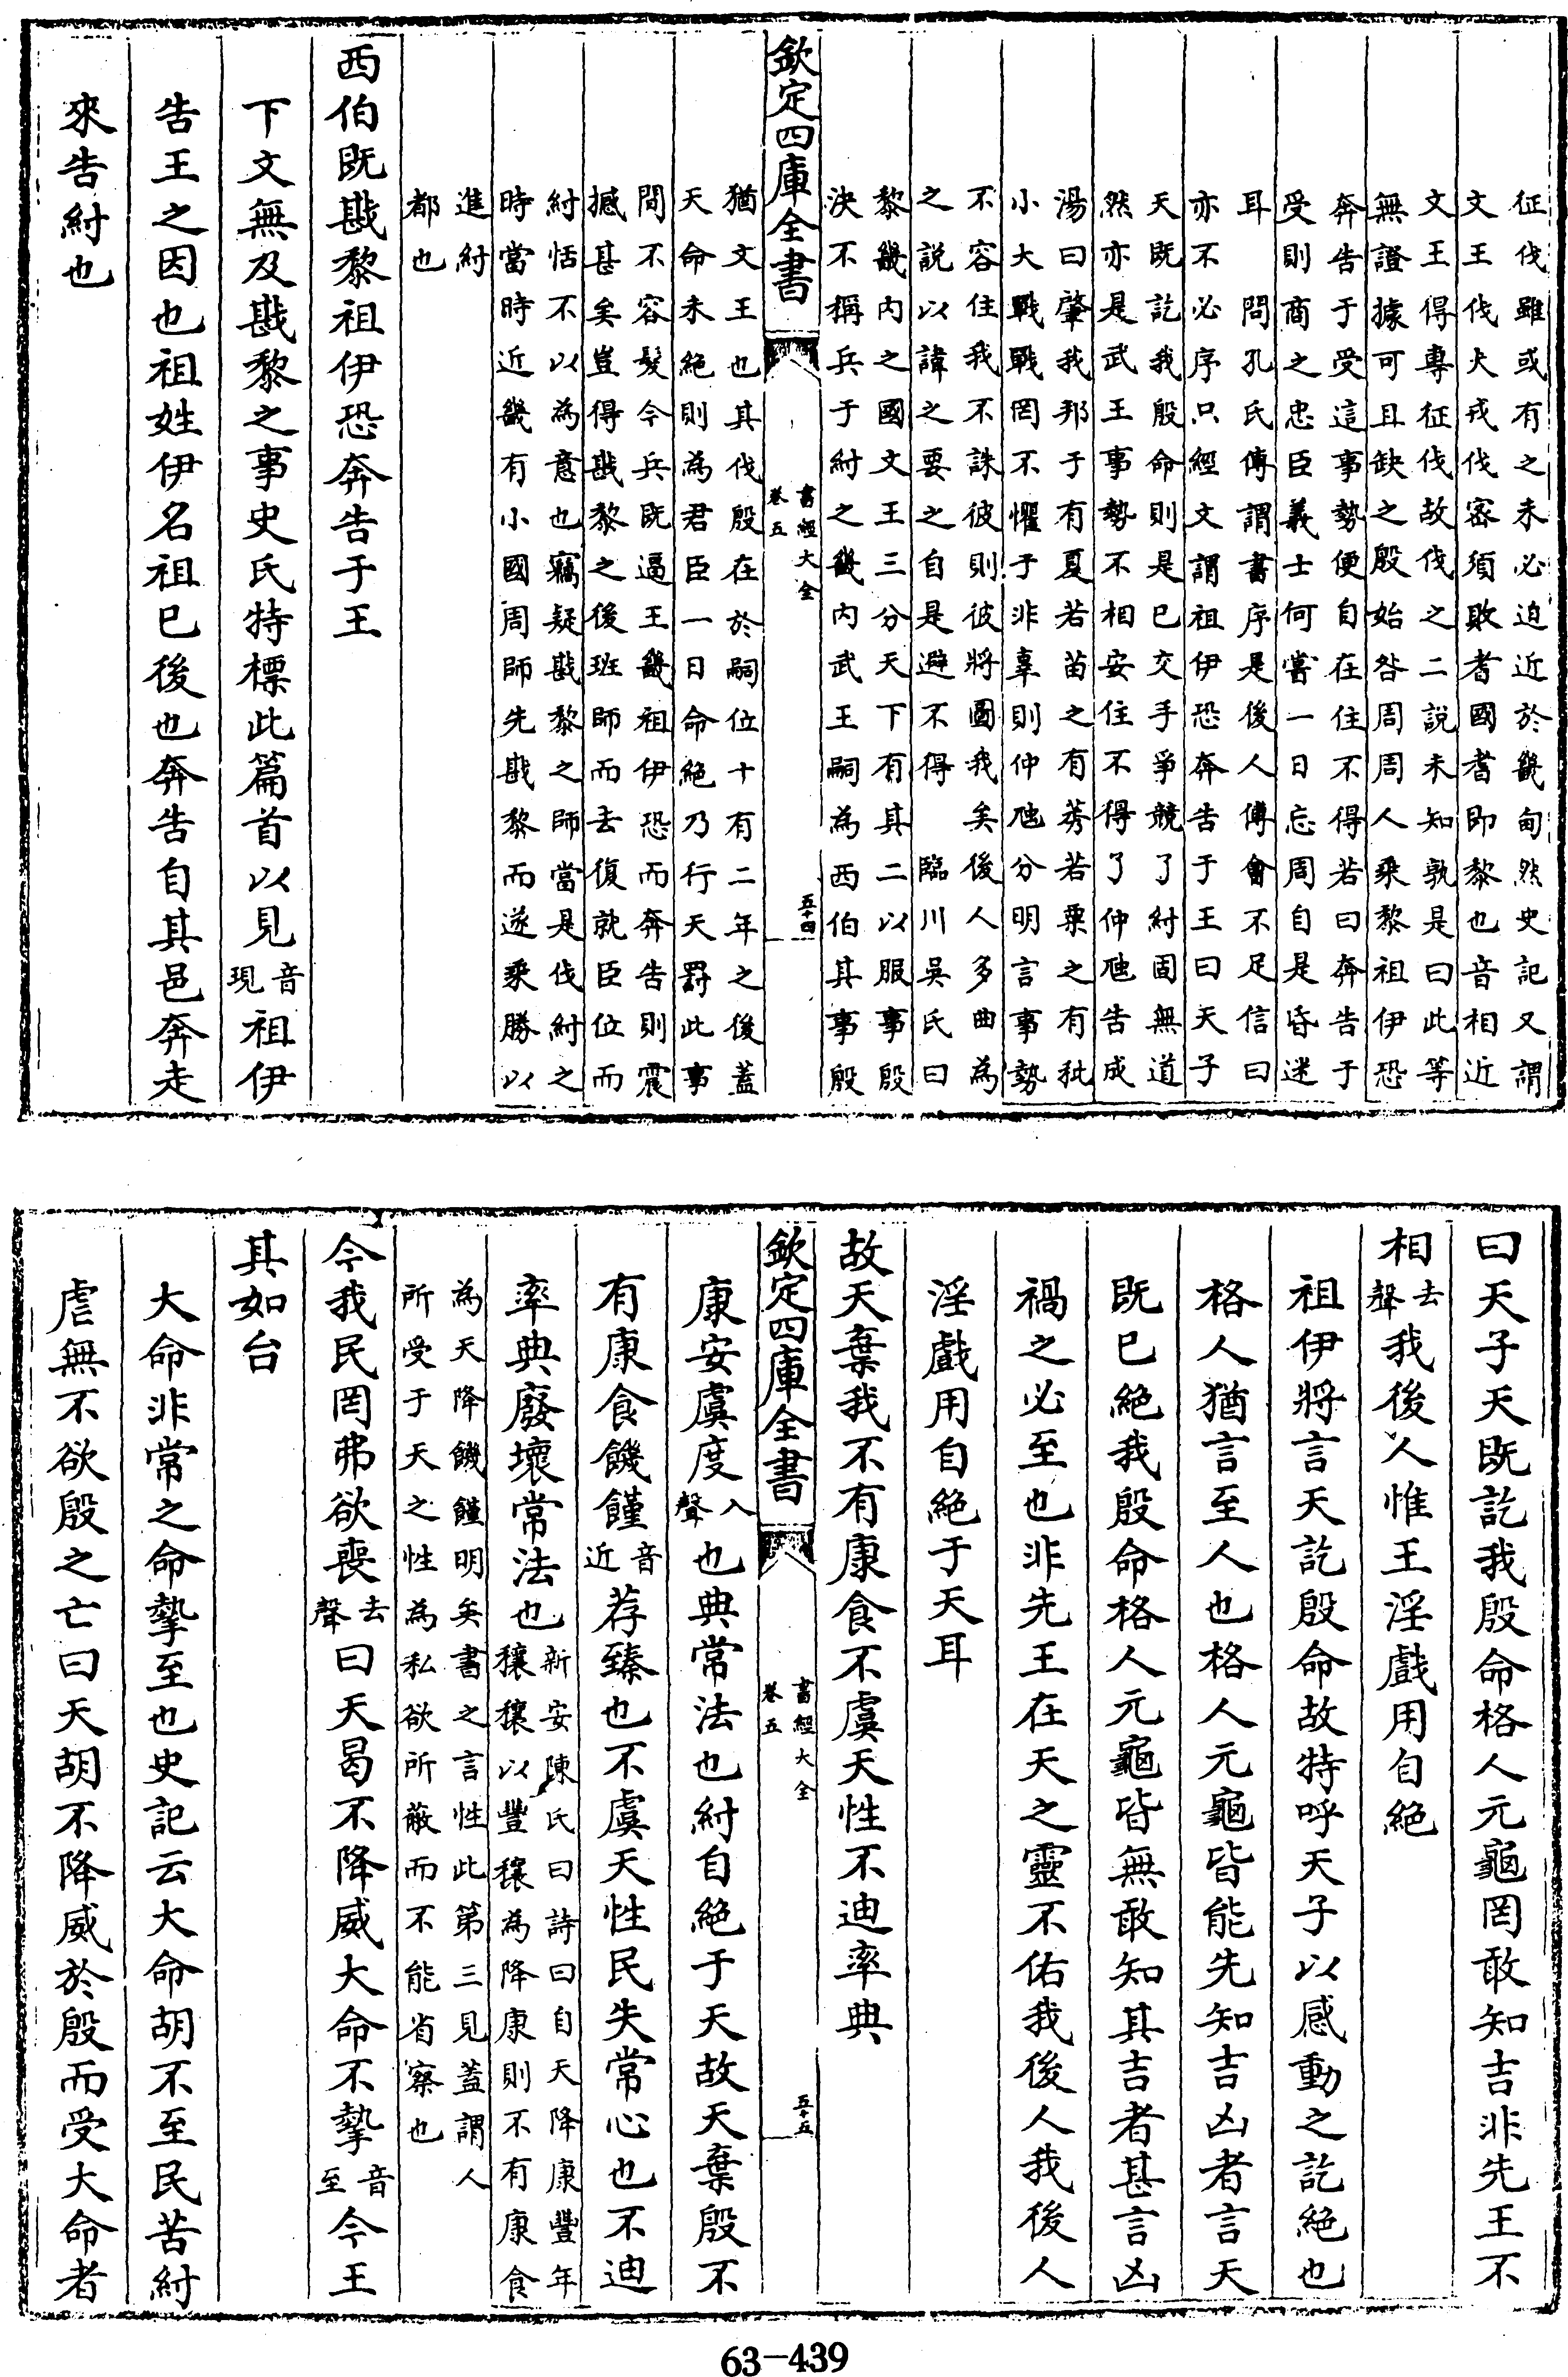 征伐雖或有之未必迫近於畿甸然史記又謂
文王伐犬戎伐密須敗耆國耆即黎也音相近
文王得專征伐故伐之二說未知孰是曰此等
無證據可且缺之殷始咎周周人乘黎祖伊恐
奔告于受這事勢便自在住不得若曰奔告于
受則商之忠臣義士何嘗一日忘周自是昏迷
耳　問孔氏傳謂書序是後人傅會不足信曰
亦不必序只經文謂祖伊恐奔告于王曰天子
天既訖我殷命則是已交手爭競了紂固無道
然亦是武王事勢不相安住不得了仲虺告成
湯曰肇我邦于有夏若苗之有莠若粟之有秕
小大戰戰罔不懼于非辜則仲虺分明言事勢
不容住我不誅彼則彼將圖我矣後人多曲為
之說以諱之要之自是避不得　臨川吳氏曰
黎畿内之國文王三分天下有其二以服事殷
決不稱兵于紂之畿内武王嗣為西伯其事殷
欽定四庫全書
書經大全
卷五
五十四
猶文王也其伐殷在於嗣位十有二年之後蓋
天命未絕則為君臣一日命絕乃行天罸此事
間不容髮今兵既逼王畿祖伊恐而奔告則震
撼甚矣豈得戡黎之後班師而去復就臣位而
紂恬不以為意也竊疑戡黎之師當是伐紂之
時當時近畿有小國周師先戡黎而遂乘勝以
進紂
都也
西伯既戡黎祖伊恐奔告于王
下文無及戡黎之事史氏特標此篇首以見音現祖伊
告王之因也祖姓伊名祖已後也奔告自其邑奔走
來告紂也
曰天子天既訖我殷命格人元龜罔敢知吉非先王不
相去聲我後人惟王淫戲用自絕
祖伊將言天訖殷命故特呼天子以感動之訖絕也
格人猶言至人也格人元龜皆能先知吉凶者言天
既已絕我殷命格人元龜皆無敢知其吉者甚言凶
禍之必至也非先王在天之靈不佑我後人我後人
淫戲用自絕于天耳
故天棄我不有康食不虞天性不迪率典
欽定四庫全書
書經大全
卷五
五十五
康安虞度入聲也典常法也紂自絕于天故天棄殷不
有康食饑饉音近荐臻也不虞天性民失常心也不迪
率典廢壞常法也新安陳氏曰詩曰自天降康豐年
穰穰以豐穰為降康則不有康食
為天降饑饉明矣書之言性此第三見蓋謂人
所受于天之性為私欲所蔽而不能省察也
今我民罔弗欲喪去聲曰天曷不降威大命不摯音至今王
其如台
大命非常之命摯至也史記云大命胡不至民苦紂
虐無不欲殷之亡曰天胡不降威於殷而受大命者
63-439